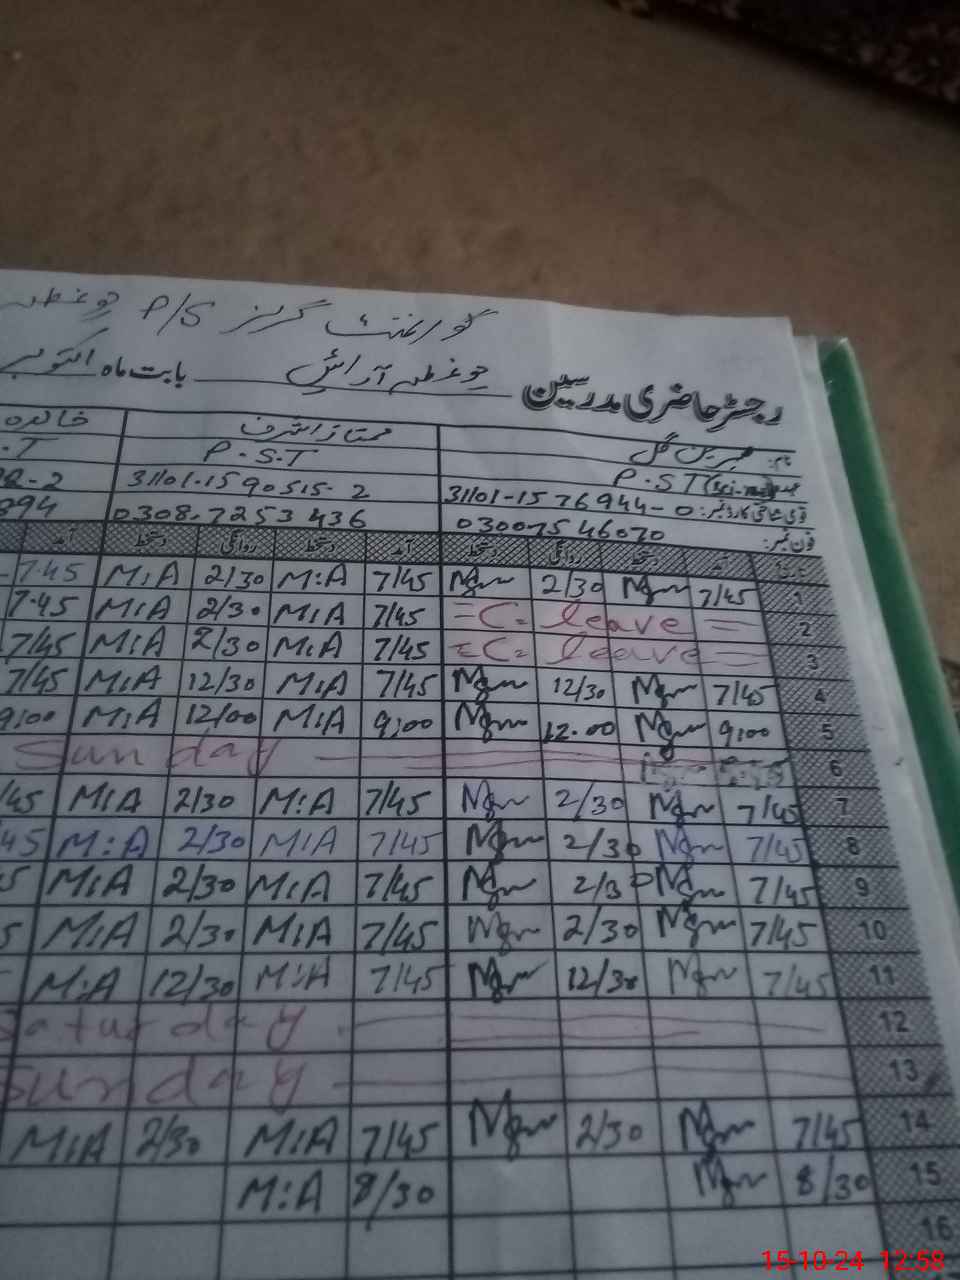 گورنمنٹ گرلز P/S چوغطہ
رجسٹر حاضری مدرسین چوغطہ آرائیں بابت ماہ اکتوبر
نام: مہرین گل ممتاز اشرف خالدہ
عہدہ P.S.T P.S.T .T
قومی شناختی کارڈ نمبر: 31101-1576944-0 31101-1590515-2 -2
فون نمبر: 03007546070 0308-7253436 894
آمد دستخط روانگی دستخط آمد دستخط روانگی دستخط آمد
1 7/45 Mgm 2/30 Mgm 7/45 M:A 2/30 M:A 7.45
2 =C. leave= 7/45 M:A 2/30 M:A 7.45
3 =C. leave= 7/45 M:A 2/30 M:A 7/45
4 7/45 Mgm 12/30 Mgm 7/45 M:A 12/30 M:A 7/45
5 9:00 Mgm 12.00 Mgm 9:00 M:A 12/00 M:A 9:00
6 Sunday
7 7/45 Mgm 2/30 Mgm 7/45 M:A 2/30 M:A /45
8 7/45 Mgm 2/30 Mgm 7/45 M:A 2/30 M:A 45
9 7/45 Mgm 2/30 Mgm 7/45 M:A 2/30 M:A 5
10 7/45 Mgm 2/30 Mgm 7/45 M:A 2/30 M:A 5
11 7/45 Mgm 12/30 Mgm 7/45 M:A 12/30 M:A
12 Saturday
13 Sunday
14 7/45 Mgm 2/30 Mgm 7/45 M:A 2/30 M:A
15 8/30 Mgm 8/30 M:A
16
15-10-24 12:58